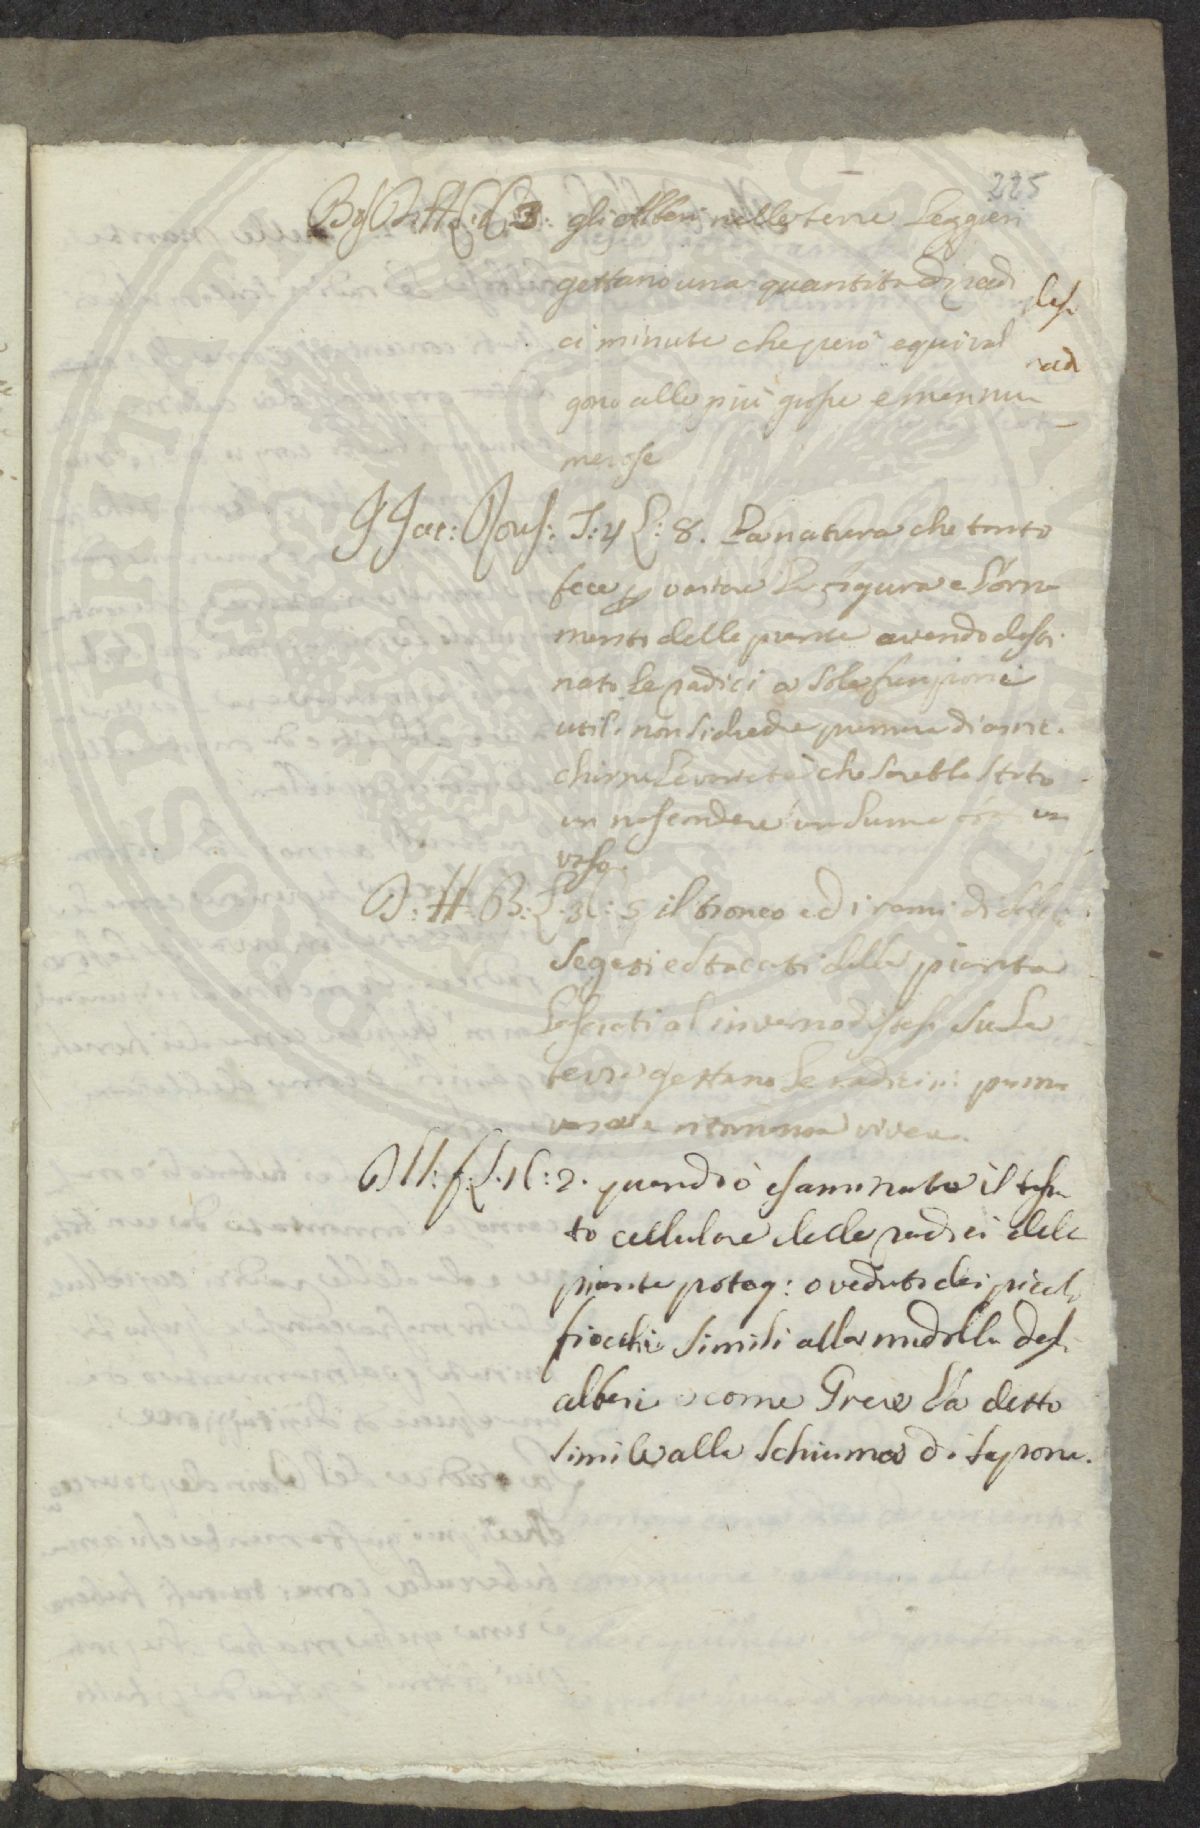 225
3: gli Alberi nelle terre Leggieri
gettano una quantità di radi
ci minute che però equival
gono alle più grosse e men nu
merose
J Jac: Rous: T: 4 L: 8. La natura che tanto
fece p variare la figura e l'orna
mento delle piante avendo desti
nato le radici a sole funzioni
utili non si diede premura di arric
chirne le varietà che sarebbe stato
un nascondere un lume un
vaso.
D: H: B: L: 5 il tronco ed i rami di
Segati e staccati dalla pianta
Lasciati al inverno distesi su La
terra gettano le radici in prima
vera e ritornano a vivere.
2. quando ò esaminato il tessu
to cellulare delle radici delle
piante potag: o veduto dei picoli
fiocchi simili alla midolla degl
alberi o come Grew l'a detto
simile alla schiuma di sapone.